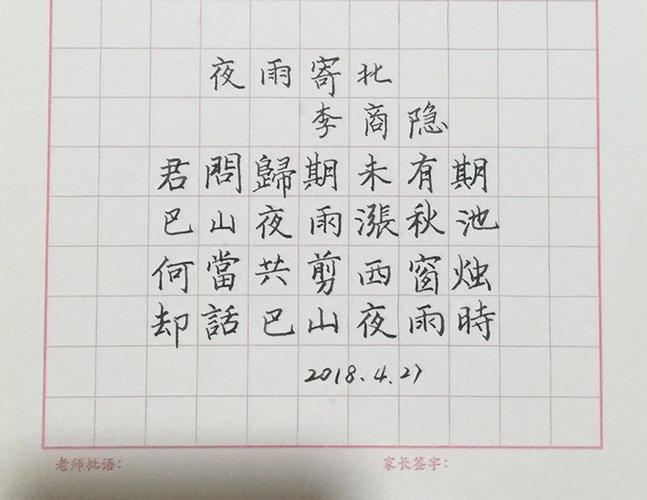 夜雨寄北
李商隐
君問歸期未有期
巴山夜雨漲秋池
何當共剪西窗烛
却話巴山夜雨時
2018.4.27
老师批语：
家长签字：